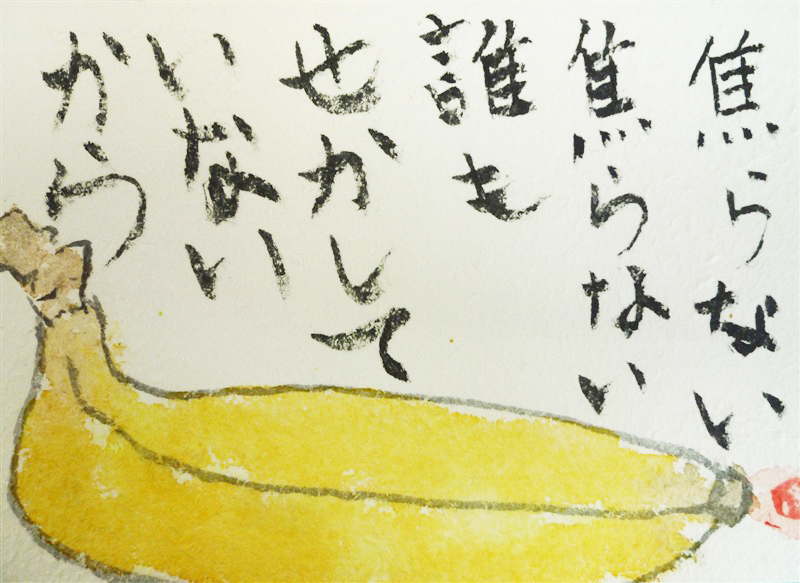 焦らない
焦らない
誰も
せかして
いない
から